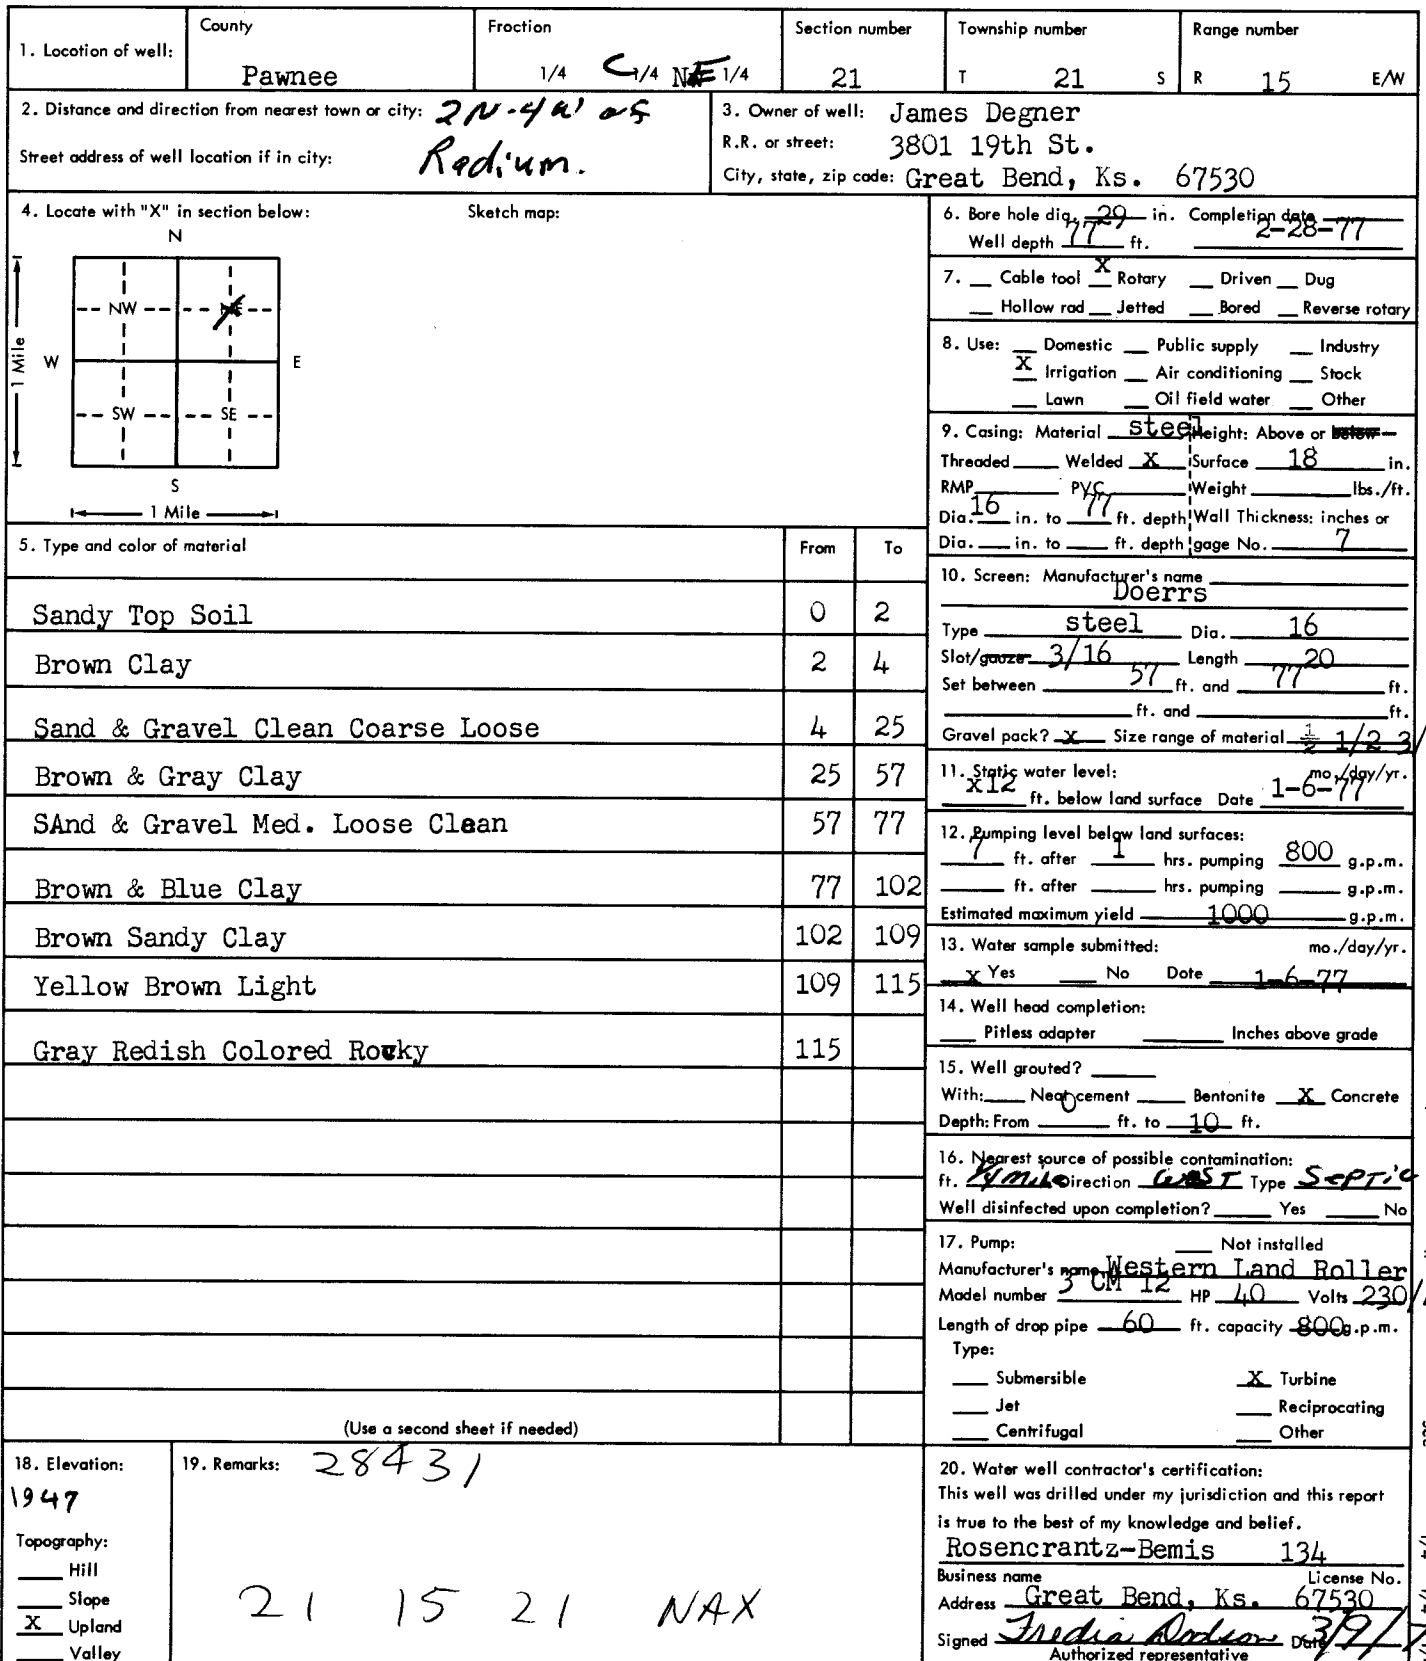 1. Location of well: County Fraction Section number Township number Range number
Pawnee 1/4 C 1/4 NE 1/4 21 T 21 S R 15 E/W
2. Distance and direction from nearest town or city: 2N-4W of
Street address of well location if in city: Radium.
3. Owner of well: James Degner
R.R. or street: 3801 19th St.
City, state, zip code: Great Bend, Ks. 67530
4. Locate with "X" in section below: Sketch map:
N
NW
W E
1 Mile
SW SE
S
1 Mile
5. Type and color of material From To
Sandy Top Soil 0 2
Brown Clay 2 4
Sand & Gravel Clean Coarse Loose 4 25
Brown & Gray Clay 25 57
SAnd & Gravel Med. Loose Clean 57 77
Brown & Blue Clay 77 102
Brown Sandy Clay 102 109
Yellow Brown Light 109 115
Gray Redish Colored Rocky 115
(Use a second sheet if needed)
6. Bore hole dia. 29 in. Completion date
Well depth 77 ft. 2-28-77
7. Cable tool X Rotary Driven Dug
Hollow rod Jetted Bored Reverse rotary
8. Use: Domestic Public supply Industry
X Irrigation Air conditioning Stock
Lawn Oil field water Other
9. Casing: Material steel Height: Above or below
Threaded Welded X Surface 18 in.
RMP PVC Weight lbs./ft.
Dia. 16 in. to 77 ft. depth Wall Thickness: inches or
Dia. in. to ft. depth gage No. 7
10. Screen: Manufacturer's name
Doerrs
Type steel Dia. 16
Slot/gauze 3/16 Length 20
Set between 57 ft. and 77 ft.
ft. and ft.
Gravel pack? X Size range of material 1/2 1/2 3/
11. Static water level: mo./day/yr.
x12 ft. below land surface Date 1-6-77
12. Pumping level below land surfaces:
7 ft. after 1 hrs. pumping 800 g.p.m.
ft. after hrs. pumping g.p.m.
Estimated maximum yield 1000 g.p.m.
13. Water sample submitted: mo./day/yr.
x Yes No Date 1-6-77
14. Well head completion:
Pitless adapter Inches above grade
15. Well grouted?
With: Neat cement Bentonite X Concrete
Depth: From 0 ft. to 10 ft.
16. Nearest source of possible contamination:
ft. 1/4 mile Direction West Type Septic
Well disinfected upon completion? Yes No
17. Pump: Not installed
Manufacturer's name Western Land Roller
Model number 3 CM 12 HP 40 Volts 230/
Length of drop pipe 60 ft. capacity 800 g.p.m.
Type:
Submersible X Turbine
Jet Reciprocating
Centrifugal Other
18. Elevation:
1947
Topography:
Hill
Slope
X Upland
Valley
19. Remarks: 28431
21 15 21 NAX
20. Water well contractor's certification:
This well was drilled under my jurisdiction and this report
is true to the best of my knowledge and belief.
Rosencrantz-Bemis 134
Business name License No.
Address Great Bend, Ks. 67530
Signed Fredia Dodson Date 3/9/7
Authorized representative